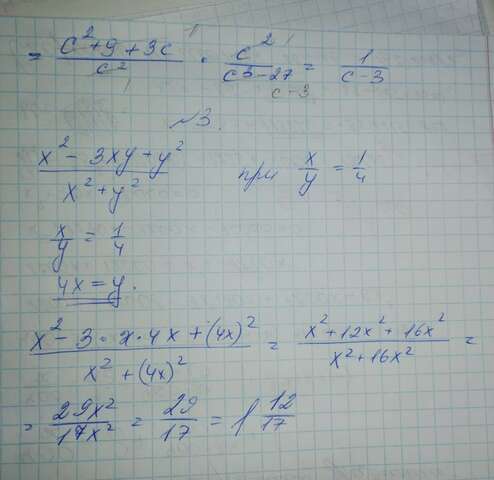 = (c² + 9 + 3c)/c² · c²/(c³ - 27) = 1/(c - 3)
c - 3
№3.
(x² - 3xy + y²)/(x² + y²) при x/y = 1/4
x/y = 1/4
4x = y.
(x² - 3 · x · 4x + (4x)²)/(x² + (4x)²) = (x² + 12x² + 16x²)/(x² + 16x²) =
= 29x²/17x² = 29/17 = 1 12/17